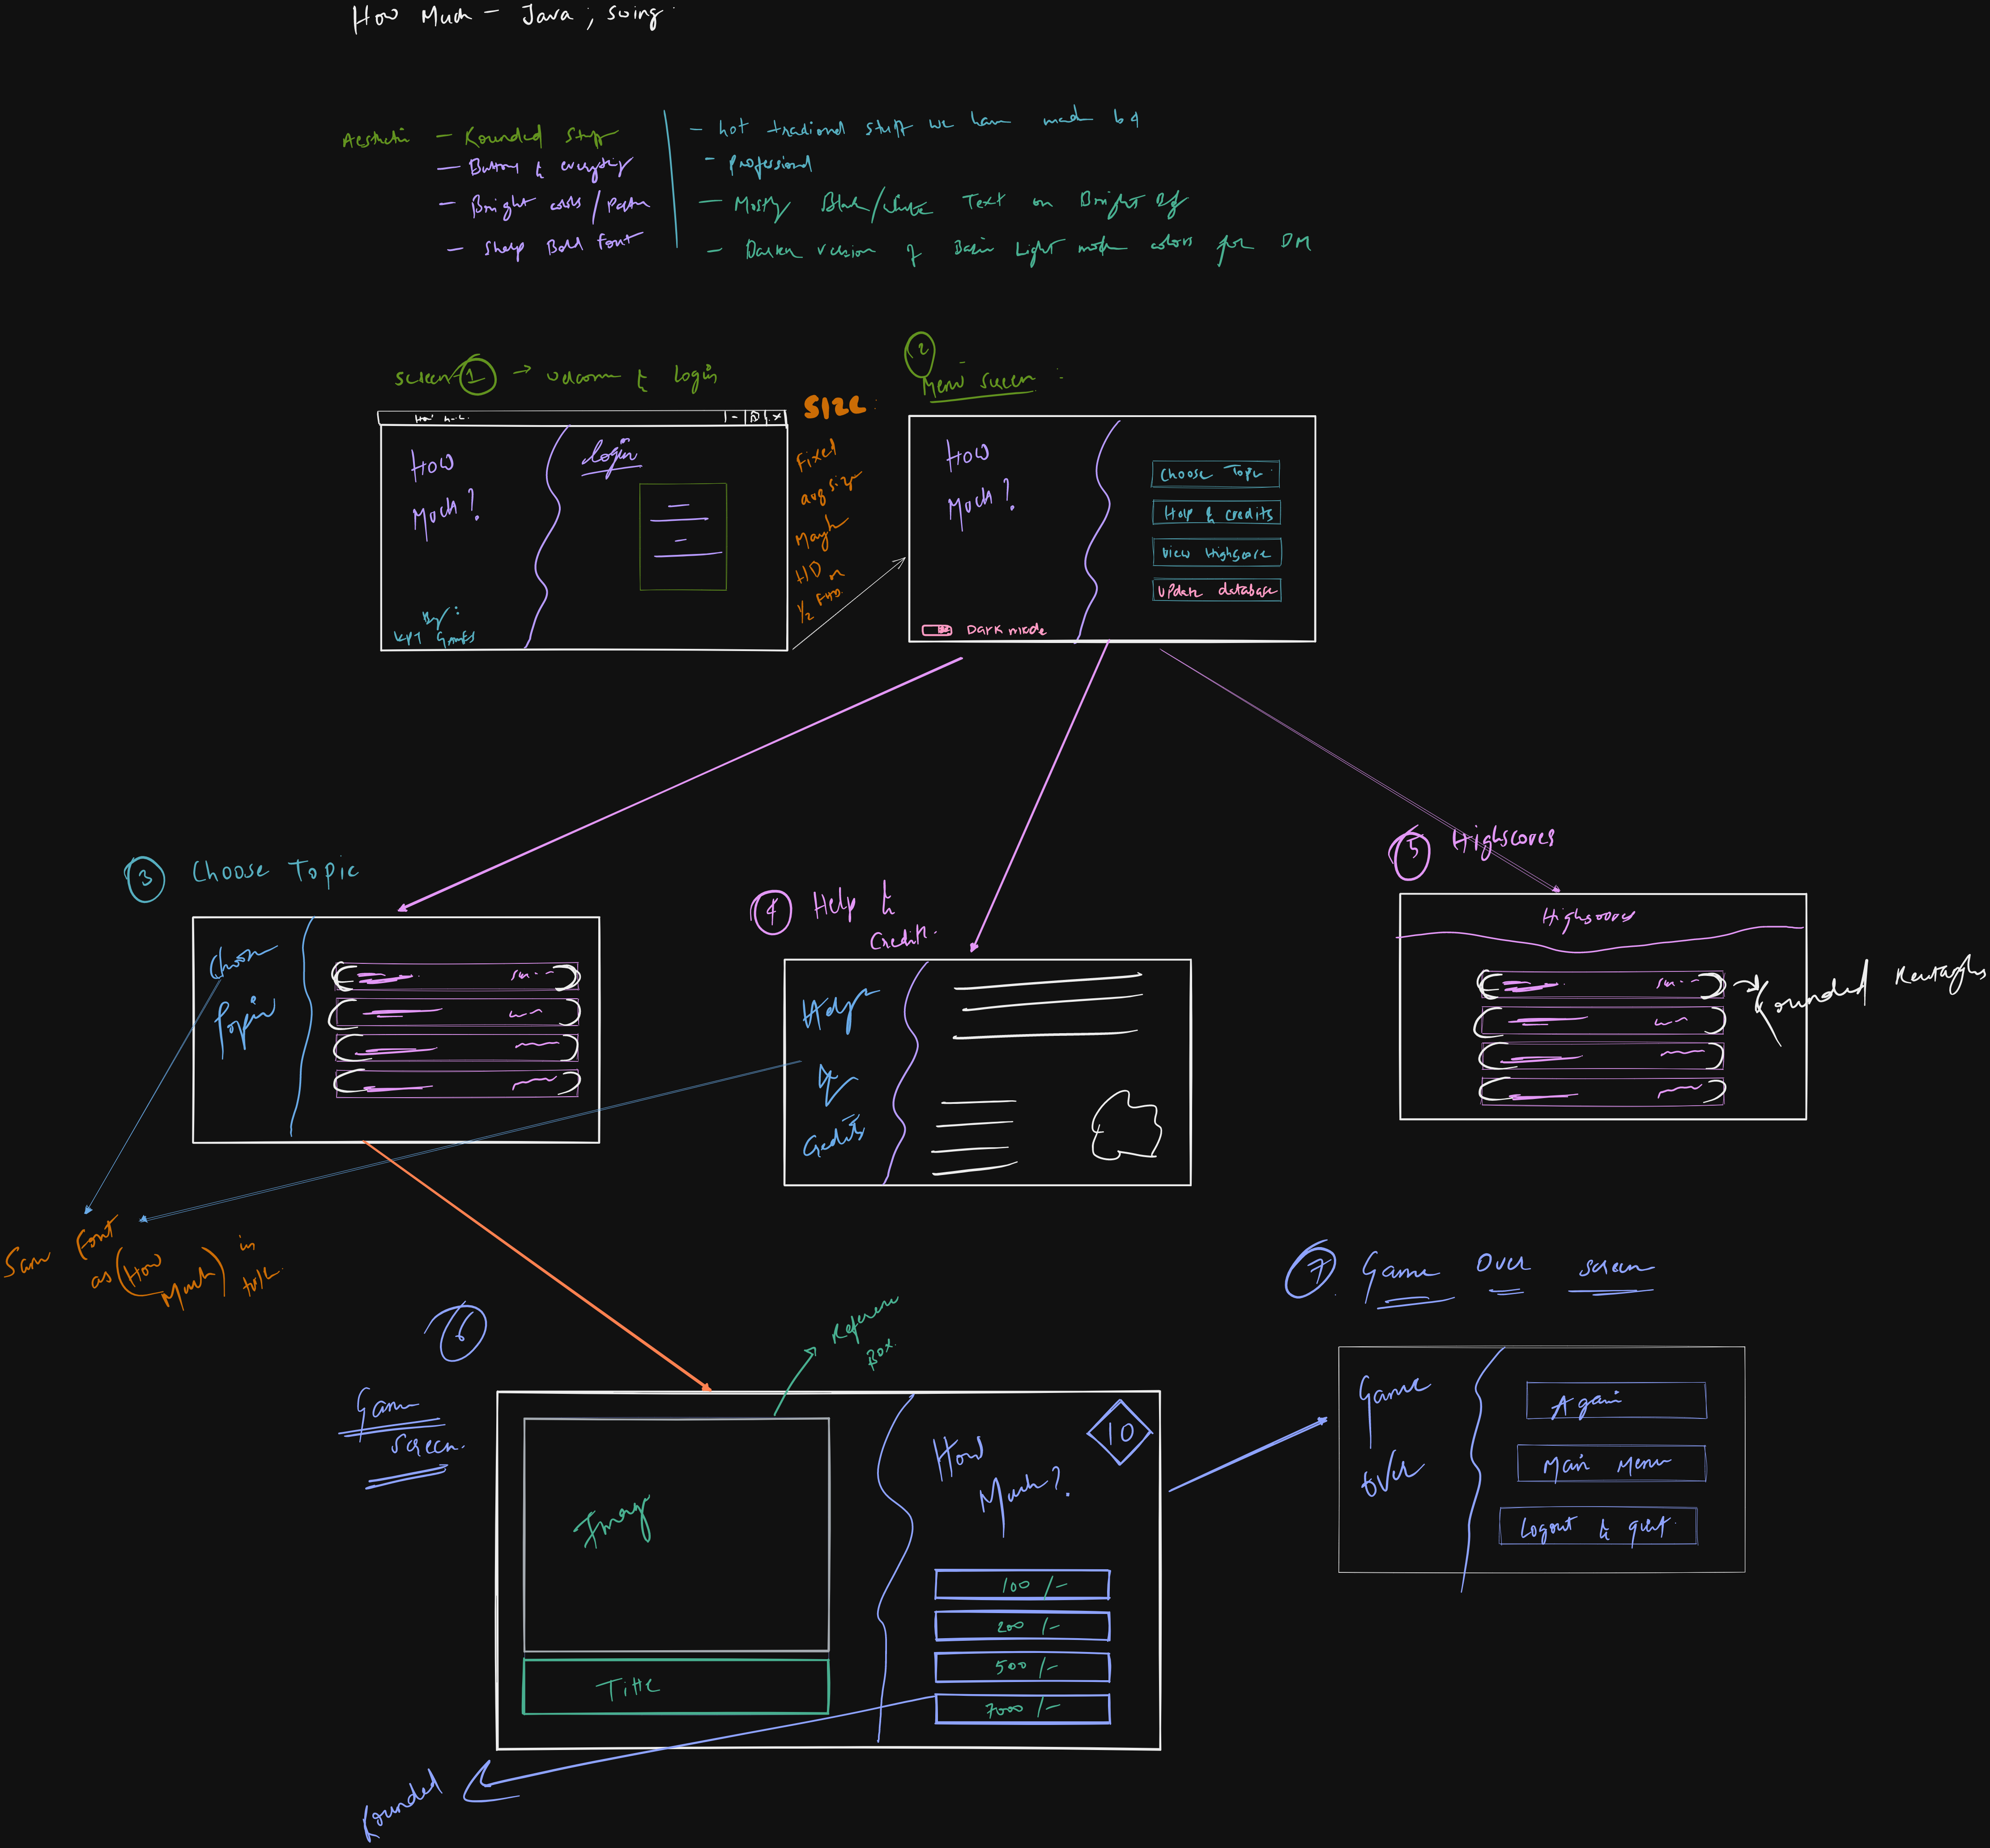 How Much - Java ; swing.
Aesthetic - Rounded Stuff
- Buttons & everything
- Bright colors /
- Sharp Bold font
- Not tradional stuff we have made b4
- Professional
- Mostly Black/White Text on Bright Bg
- Darker version of Basic Light mode colors for DM
Screen 1 → welcome & login
How
Much?
Login
By:
Games
SIZE:
Fixed
avg size
Maybe
HD or
1/2
2
Menu Screen:
How
Much?
Choose Topic
Help & credits
View Highscore
Update database
Dark mode
3 Choose Topic
Choose
Topic
4 Help &
Credit.
Help
&
Credits
5 Highscores
Highscores
Rounded Rectangles
Same Font
as (How
Much) in
title.
6
Game
Screen.
Reference
Box.
Image
Title
How
Much?
10
100 /-
200 /-
500 /-
7000 /-
Rounded
7. Game Over screen
Game
Over
Again
Main Menu
Logout & quit.